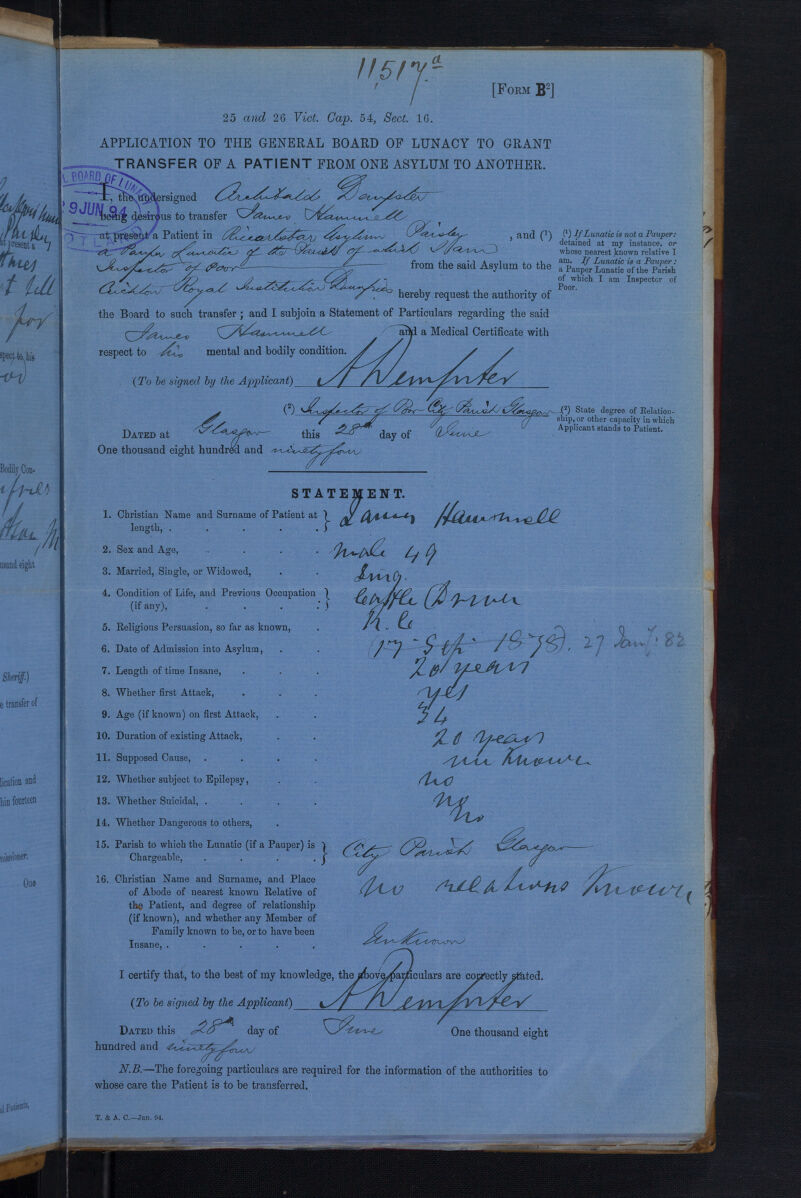 11,517.a
[FORM B²]
25 and 26 Vict. Cap. 54, Sect. 16.
APPLICATION TO THE GENERAL BOARD OF LUNACY TO GRANT
TRANSFER OF A PATIENT FROM ONE ASYLUM TO ANOTHER.
L BOARD OF LUNACY
29 JUN 94
I, the undersigned Archibald Dempster
being desirous to transfer James Hammell
at present a Patient in Riccartsbar Asylum Paisley, and (¹)
a Pauper Lunatic of the Parish of which I am
Inspector of Poor from the said Asylum to the
Crichton Royal Institution Dumfries hereby request the authority of
the Board to such transfer; and I subjoin a Statement of Particulars regarding the said
James Hammell and a Medical Certificate with
respect to his mental and bodily condition.
(¹) If Lunatic is not a Pauper:
detained at my instance, or
whose nearest known relative I
am. If Lunatic is a Pauper:
a Pauper Lunatic of the Parish
of which I am Inspector of
Poor.
(To be signed by the Applicant) A Dempster
(²) Inspector of Poor City Parish Glasgow
(²) State degree of Relation-
ship, or other capacity in which
Applicant stands to Patient.
DATED at Glasgow this 28th day of June
One thousand eight hundred and ninety four
STATEMENT.
1. Christian Name and Surname of Patient at
length, . . . . . James Hammell
2. Sex and Age, . . . . male 49
3. Married, Single, or Widowed, . . Sing.
4. Condition of Life, and Previous Occupation
(if any), . . . . Cattle Driver
5. Religious Persuasion, so far as known, . R. C
6. Date of Admission into Asylum, . . (17 Sept 1878). 27 Jany. 82
7. Length of time Insane, . . . 20 years
8. Whether first Attack, . . . yes
9. Age (if known) on first Attack, . . 34
10. Duration of existing Attack, . . 20 years
11. Supposed Cause, . . . . un known
12. Whether subject to Epilepsy, . . no
13. Whether Suicidal, . . . . no
14. Whether Dangerous to others, . no
15. Parish to which the Lunatic (if a Pauper) is
Chargeable, . . . . City Parish Glasgow
16. Christian Name and Surname, and Place
of Abode of nearest known Relative of
the Patient, and degree of relationship
(if known), and whether any Member of
Family known to be, or to have been
Insane, . . . . .
no relations Known
Unknown
I certify that, to the best of my knowledge, the above particulars are correctly stated.
(To be signed by the Applicant) A Dempster
DATED this 28th day of June One thousand eight
hundred and ninety four
N.B.—The foregoing particulars are required for the information of the authorities to
whose care the Patient is to be transferred.
T. & A. C.—Jan. 94.
at present a
spect to, his
Bodily Con-
sand eight
Sheriff.)
e transfer of
lication and
hin fourteen
missioner.
One
al Patients,